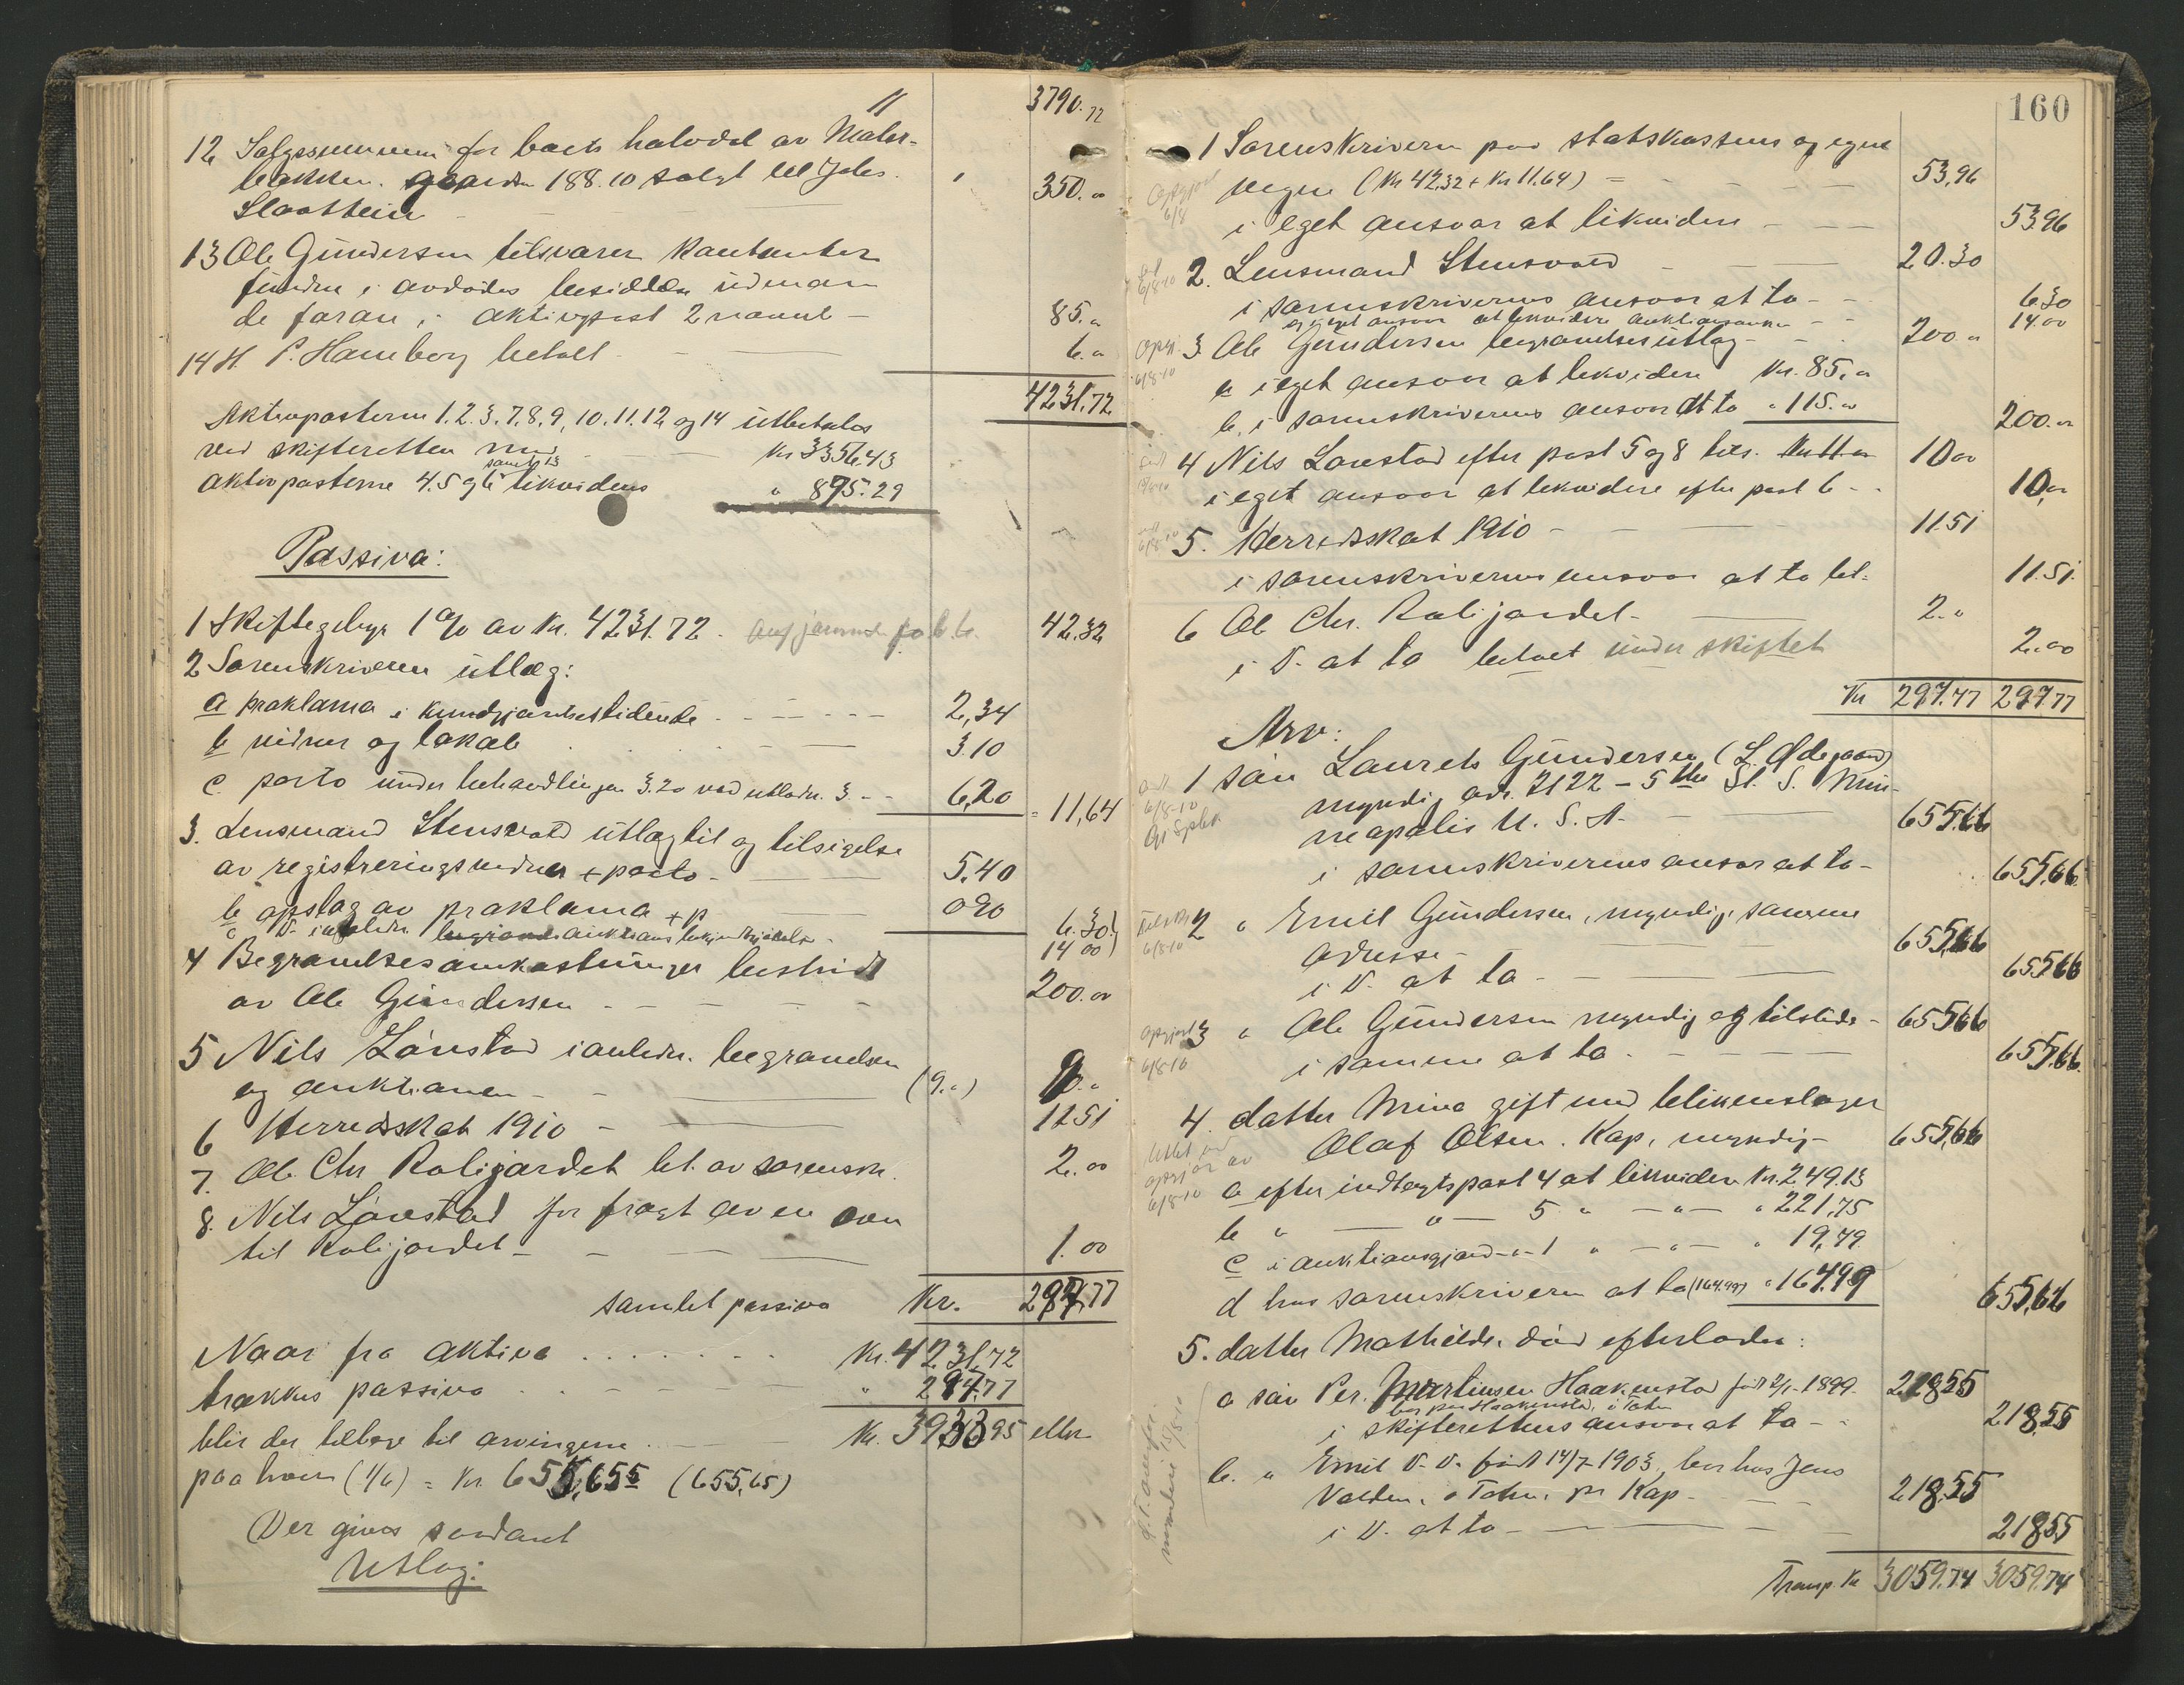 3790.72
12 Salgssummen for boets halvdel av Maler-
bakken. gaardn 188.10 solgt til Johs.
350.00
13 Ole Gundersen tilsvarer kontanter
fundne i avdødes besiddelse
de foran i aktivpost 2 nævnte — 85.„
14 H. P. Hamborg betalt — 6.„
4231.72
Aktivposterne 1.2.3.7.8.9.10.11.12 og 14 utbetales
ved skifteretten med — Kr 3356.43
samt 13
aktivposterne 4.5 og 6 likvideres „ 875.29
Passiva:
1 Skiftegebyr 1 % av Kr. 4231.72. 42.32
2 Sorenskriveren utlæg:
a proklama i kundgjørelsestidende - - - - - 2,34
b vidner og lokale - - - 3.10
c. porto under behandlingen 3.20 ved utlodn. 3 - - 6,20 = 11,64
3. Lensmand Stensvold utlæg til og tilsigelse
av registreringsvidner + porto - 5.40
b opslag av proklama + p 0 90 6.30
c D- i anledn. auktions bekjendtgjørelse - 14 00
4 Begravelsesomkostninger bestridt
av Ole Gundersen - - - - 200.00
5 Nils Lønstad i anledn. begravelsen
og auktionen - - (9.„) 9.„
6 Herredsskat 1910 - 11 51
7. Ole Chr Roligjordet bet. av sorenskr. 2.00
8. Nils Lønstad for fragt av en ovn
til Roligjordet - - 1.00
samlet passiva Kr. 297,77
Naar fra aktiva . . . . . . . Kr. 4231.72
trækkes passiva . . - - - - „ 297.77
blir der tilbage til arvingerne . - Kr. 3933 95 eller
paa hver (1/6) = Kr. 655,655 (655,65)
Der gives saadant
Utlæg:
160
1 Sorenskriveren paa statskassens og egne
vegne (Kr 42.32 + Kr 11.64) = - - - 53,96
i eget ansvar at likvidere - - - 53.96
2. Lensmand Stensvold - - 20.30
i sorenskriverens ansvar at ta - - 6.30
og i eget ansvar at likvidere - - 14.00
3. Ole Gundersen begravelsesutlæg - - 200.„
a i eget ansvar at likvidere Kr. 85.„
b. i sorenskriverens ansvar at ta „ 115.00
200.„
4 Nils Lønstad efter post 5 og 8 10 00
i eget ansvar at likvidere efter post 6 - - 10,„
5. Herredsskat 1910 - 11.51
i sorenskriverens ansvar at ta bet. 11.51.
6 Ole Chr. Roligjordet - 2.„
i D. at ta betalt under skiftet 2.00
Kr 297.77 297.77
Arv:
1 søn Laurets Gundersen (L. Ødegaard)
myndig adr. 2122 - 5the St. S. Min-
neapolis U. S. A. - 655.66
i sorenskriverens ansvar at ta - 655,66
2 „ Emil Gundersen, myndig, samme
adresse - 655,66
i D. at ta - - - 655 66
3 „ Ole Gundersen myndig og tilstede - 655 66
i samme at ta - - - 655,66.
4. datter Mina gift med blikenslager
Olaf Olsen. Kap, myndig - 655,66
a efter indtægtspost 4 at likvidere Kr. 249.13
b „ — „ — 5 „ — „ — „ 221,75
c i auktionsgjæld -„- 1 „ — „ — „ 19,79
d hos sorenskriveren at ta (164.99) „ 164.99
655,66
5. datter Mathilde, død efterlader:
a søn Per Martinsen Haakenstad født 2/1-1899 - 218,55
i skifterettens ansvar at ta - - 218,55
b. „ Emil D. D. født 14/7-1903, bor hos Jens
Volden, Toten, pr Kap - - - 218,55
i D. at ta - - - 218,55
Transp. Kr 3059.74 3059.74